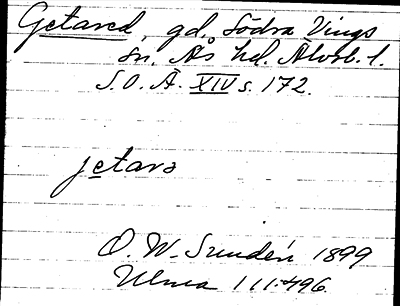 Getared, gd. Södra Vings
sn. Ås hd. Älvsb. l.
S.O.Ä. XIV s. 172.
jetara
O. W. Sundén 1899
Ulma 111:496.